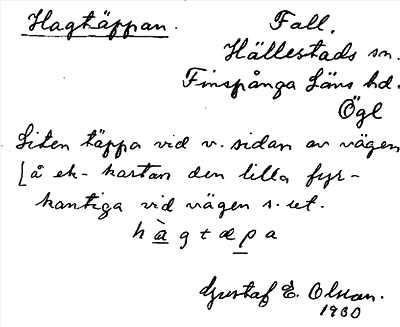 Hagtäppan.
Fall.
Hällestads sn.
Finspånga Läns hd.
Ögl
Liten täppa vid v. sidan av vägen
[å ek-kartan den lilla fyr-
kantiga vid vägen s. ut.
hàgtæpa
Gustaf E. Olsson.
1930